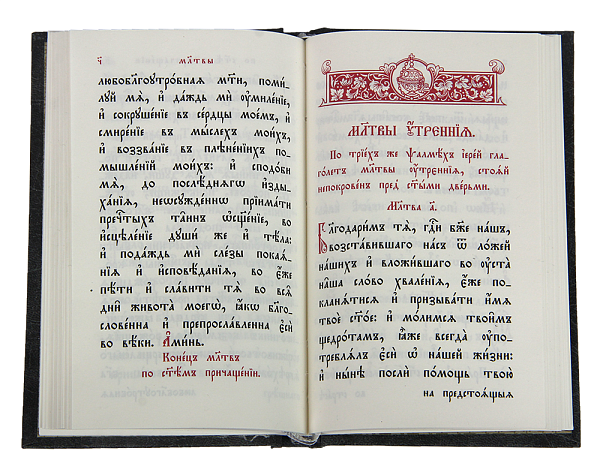 ч҃ мл҃твы
любобл҃гоутро́бная мт҃и, поми́-
луй мѧ̀, и҆ да́ждь мѝ ѹ҆миле́нїе,
и҆ сокруше́нїе въ се́рдцы мое́мъ, и҆
смире́нїе въ мы́слехъ мои́хъ,
и҆ воззва́нїе въ плѣне́нїихъ по-
мышле́нїй мои́хъ: и҆ сподо́би
мѧ̀, до послѣ́днѧгѡ и҆зды-
ха́нїя, неѡсужде́ннѡ прїима́ти
пречⷭ҇тыхъ та̑инъ ѡ҆сщ҃е́нїе, во
и҆сцѣле́нїе дꙋшѝ же и҆ тѣ́ла:
и҆ пода́ждь мѝ сле́зы покаѧ́-
нїѧ и҆ и҆сповѣ́данїѧ, во є҆́же
пѣ́ти и҆ сла́вити тѧ̀ во всѧ̑
дни̑ живота̀ моегѡ̀, ꙗ҆́кѡ бл҃го-
слове́нна и҆ препросла́вленна є҆сѝ
во вѣ́ки. А҆ми́нь.
Коне́цъ мл҃твъ
по ст҃ѣ́мъ причаще́нїи.
МЛ҃ТВЫ ОУ҆́ТРЕННІѦ.
По трїе́хъ же ѱалмѣ́хъ їере́й гла-
го́летъ мл҃твы ѹ҆́треннїѧ, стоѧ́й
непокрове́нъ пред̾ ст҃ы́ми две́рьми.
Мл҃тва а҃.
Бл҃годари́мъ тѧ̀, гдⷭ҇и бж҃е на́шъ,
возста́вившаго на́съ ѿ ло́жей
на́шихъ и҆ вложи́вшаго во ѹ҆ста̀
на̑ша сло́во хвале́нїѧ, є҆́же по-
кланѧ́тисѧ и҆ призыва́ти и҆́мѧ
твоѐ ст҃о́е: и҆ мо́лимсѧ твои̑мъ
щедро́тамъ, ꙗ҆̀же всегда̀ ѹ҆по-
треблѧ́лъ є҆сѝ ѡ҆ на́шей жи́зни:
и҆ ны́нѣ послѝ по́мощь твою̀
на предстоѧ́щыѧ